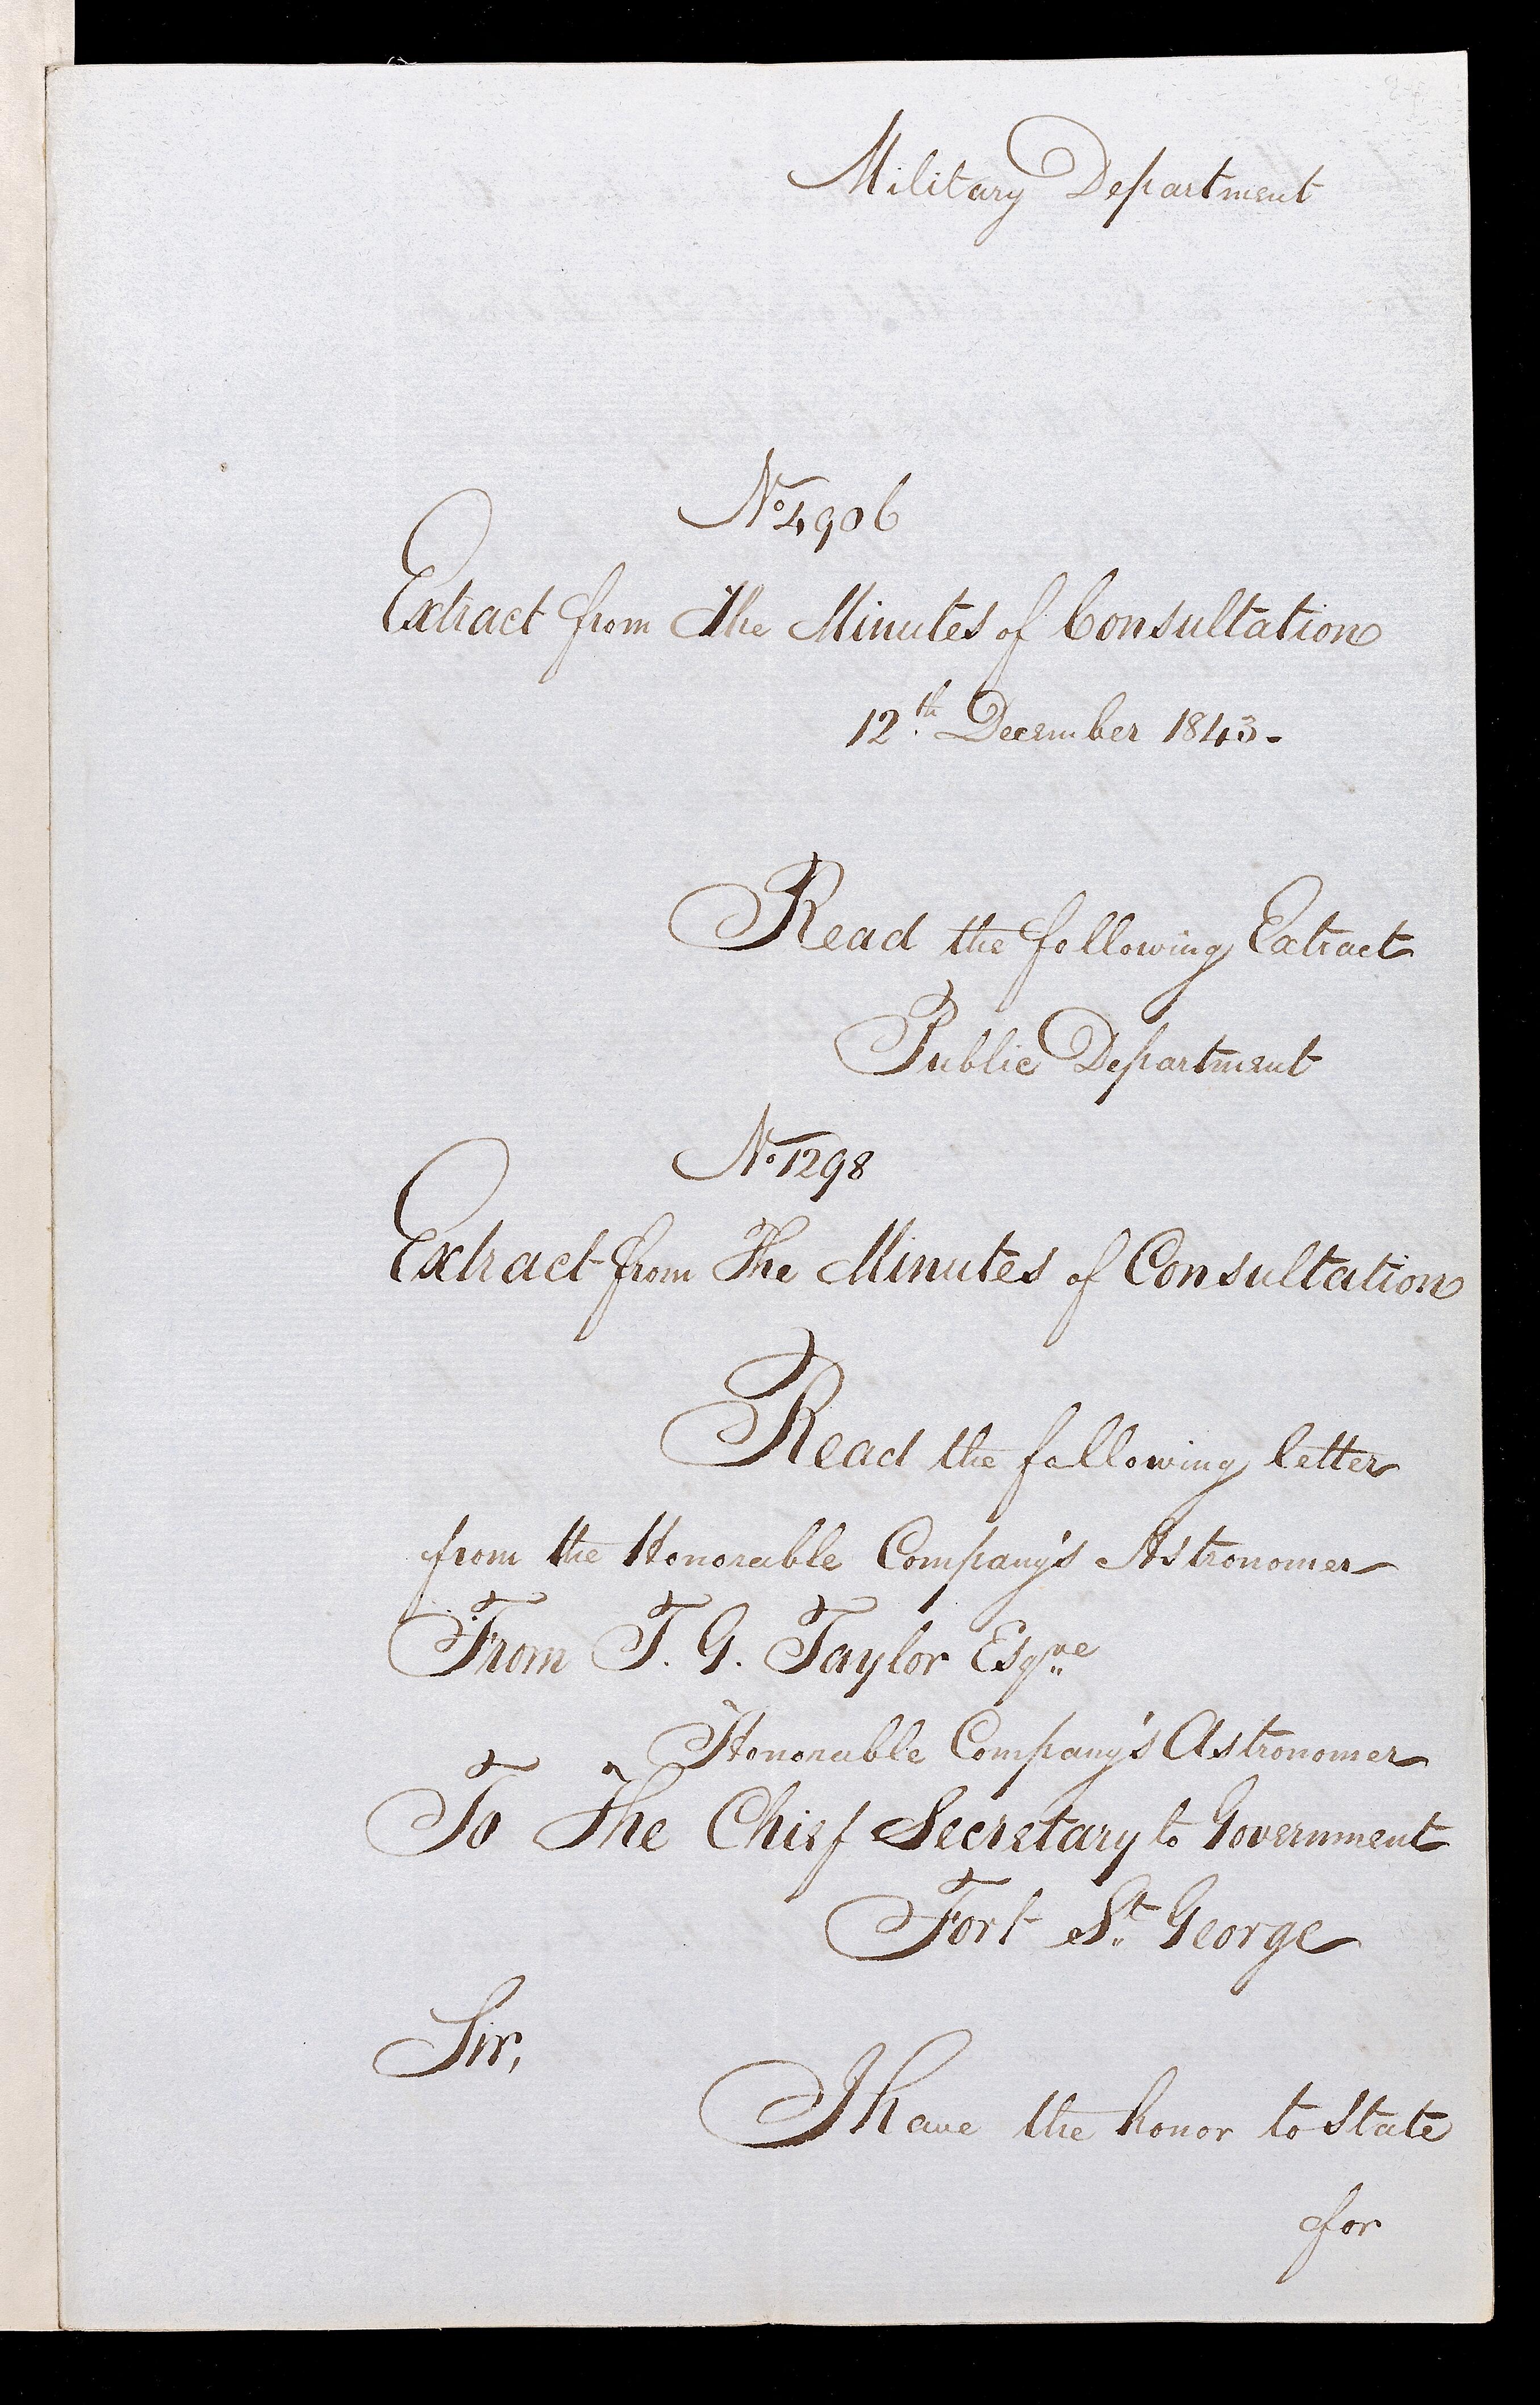 Military Department
No 4906
Extract from The Minutes of Consultation
12th December 1843-
Read the following Extract
Public Department
No 1298
Extract from The Minutes of Consultation
Read the following letter
from the Honorable Company's Astronomer
From T. G. Taylor Esqre
Honorable Company's Astronomer
To The Chief Secretary to Government
Fort St George
Sir,
I have the honor to state
for